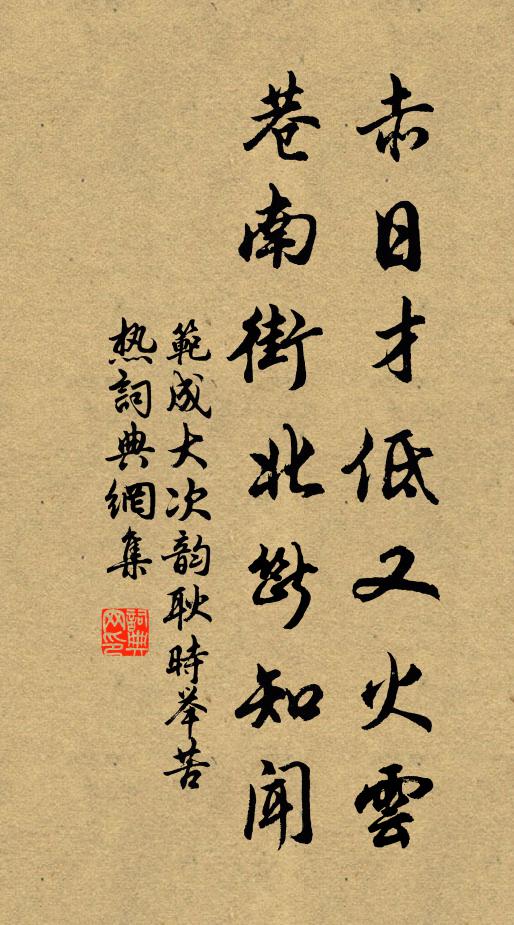 赤日才低又火雲
巷南街北斷知聞
範成大次韵耿時举苦
热詞典網集
詞典网印